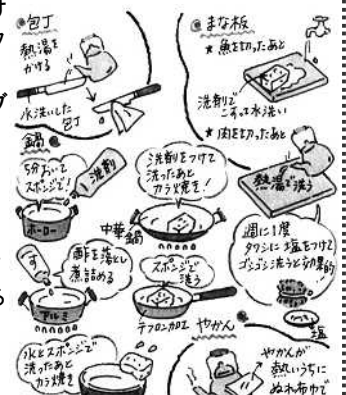 包丁
熱湯を
かける
水洗いした
包丁
まな板
★魚を切ったあと
洗剤で
こすって水洗い
★肉を切ったあと
熱湯で洗う
週に1度
タワシに塩をつけて
ゴシゴシ洗うと効果的
塩
鍋
5分おいて
スポンジで!
洗剤
ホーロー
洗剤をつけて
洗ったあと
カラ焼き!
中華鍋
す
酢を落とし
煮詰める
アルミ
スポンジで
洗う
テフロン加工
水とスポンジで
洗ったあと
カラ焼き
やかん
やかんが
熱いうちに
ぬれ布巾で